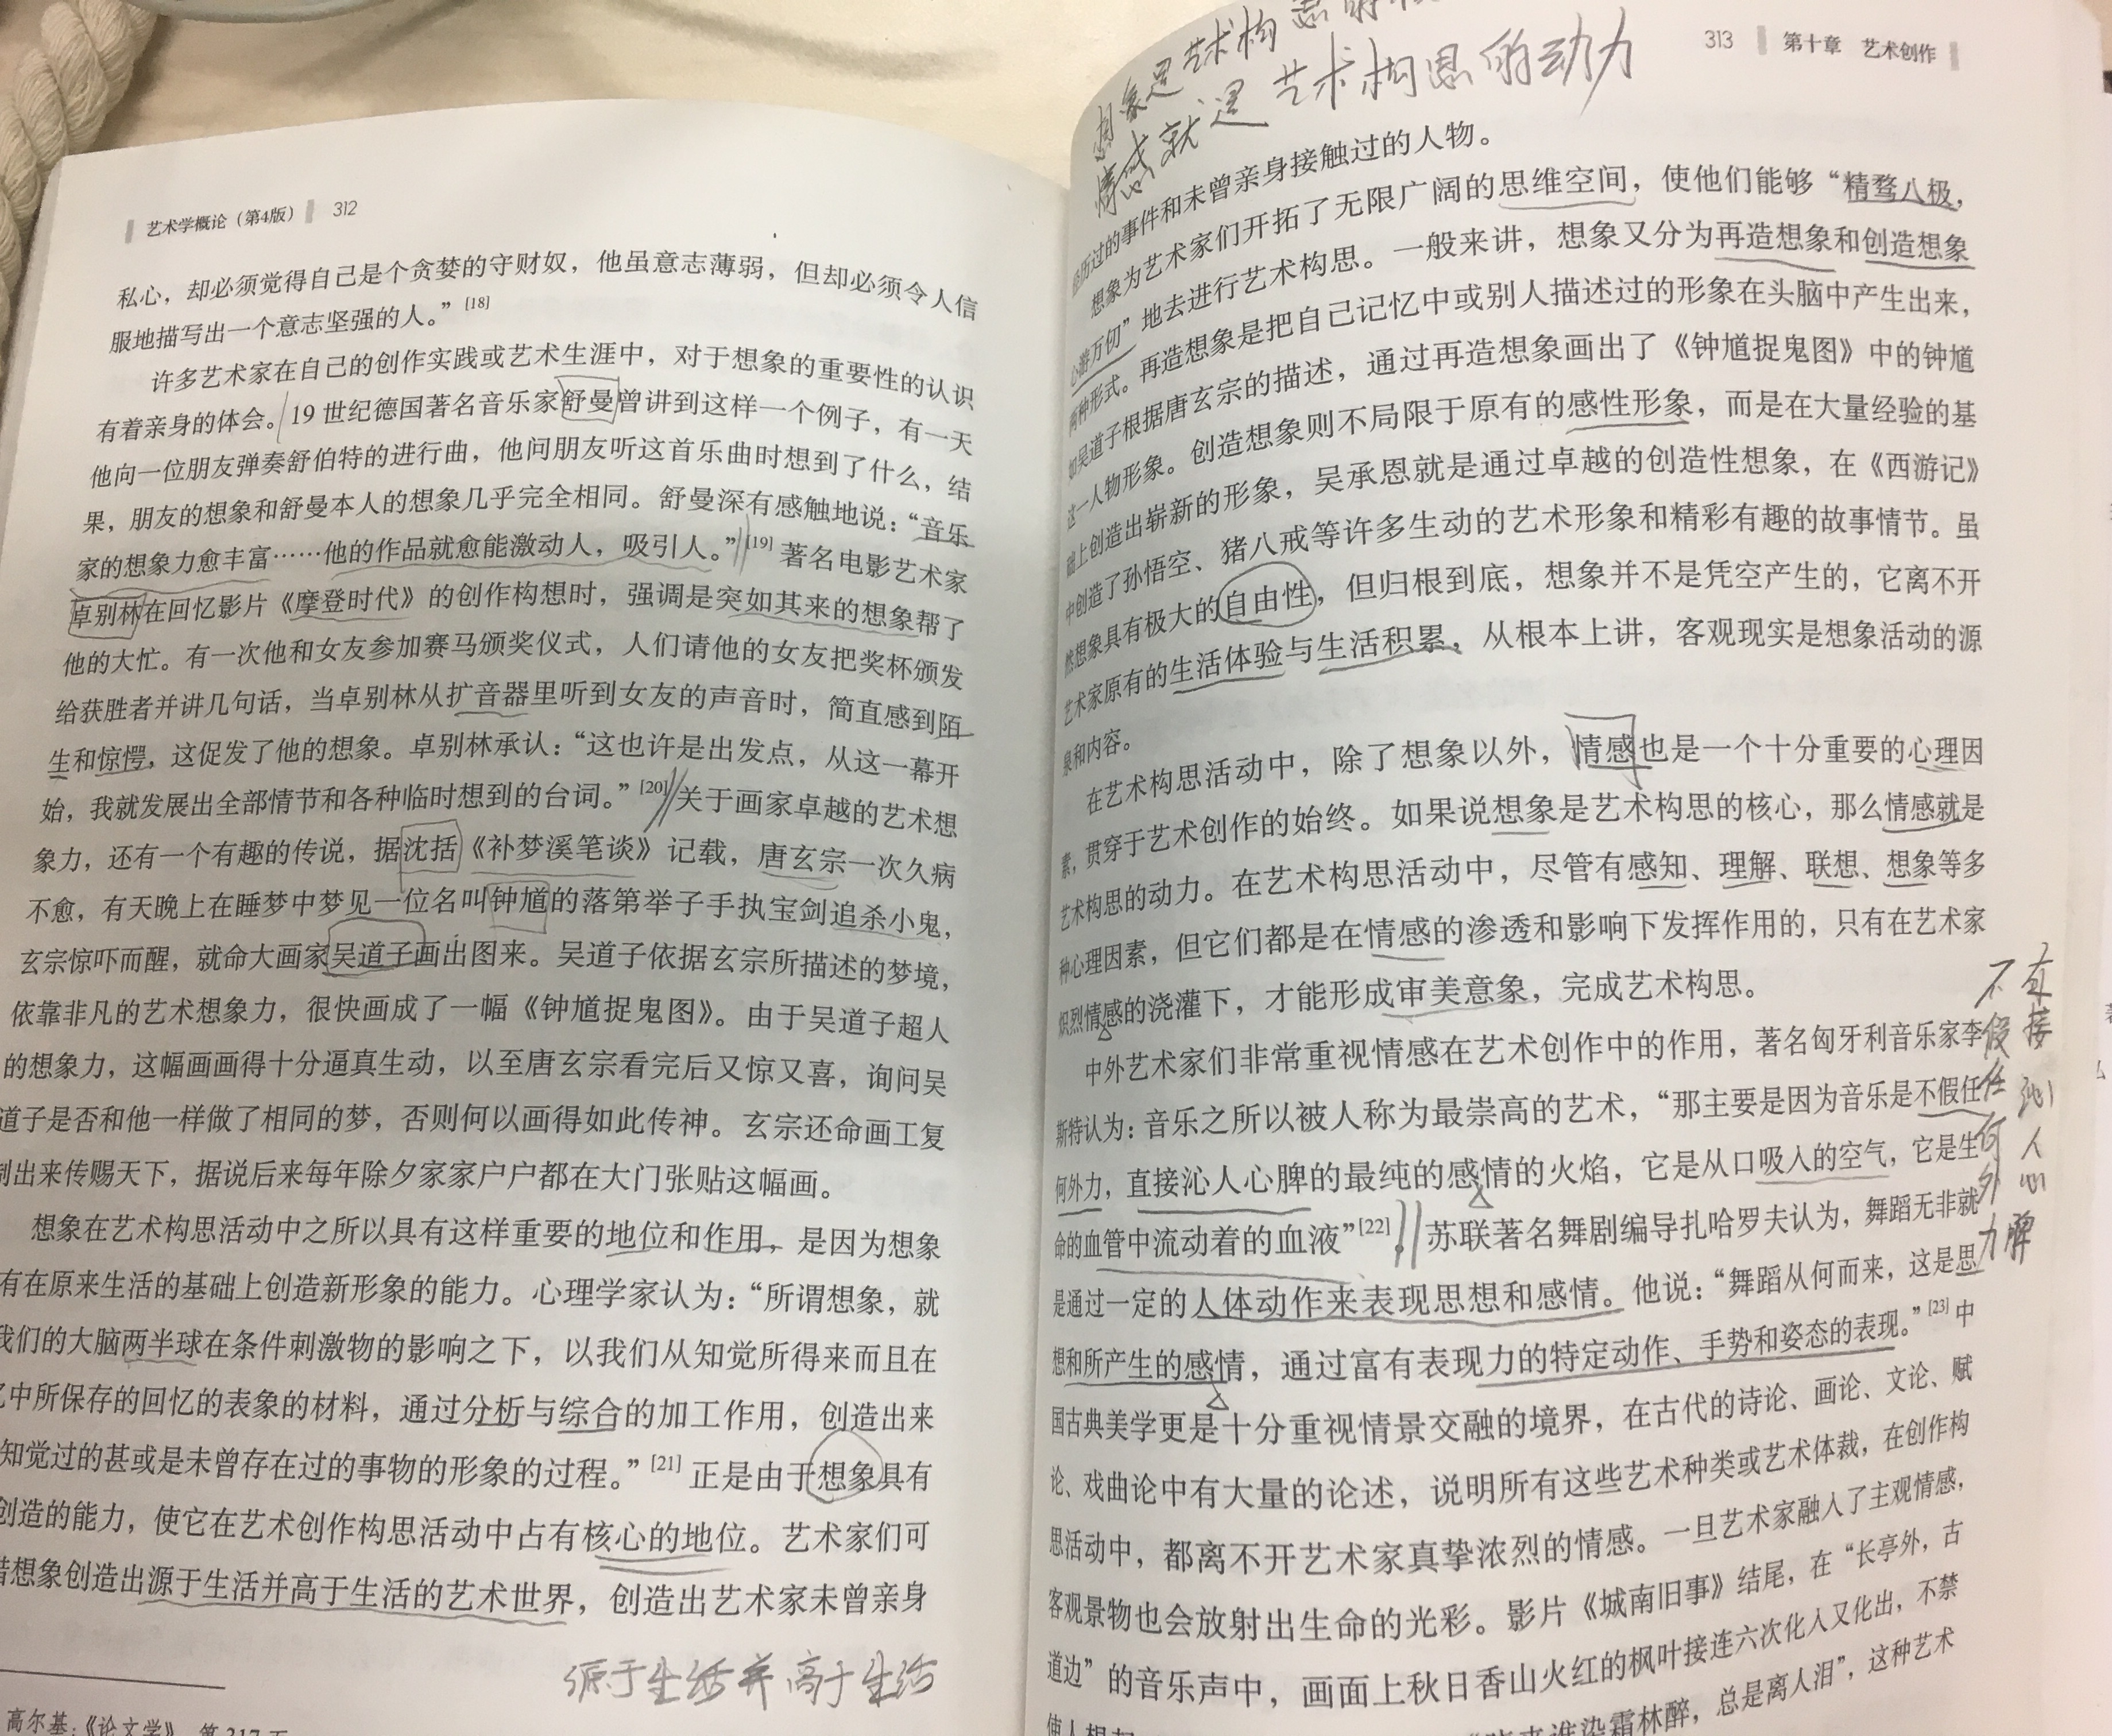 艺术学概论（第4版） 312
私心，却必须觉得自己是个贪婪的守财奴，他虽意志薄弱，但却必须令人信
服地描写出一个意志坚强的人。”[18]
许多艺术家在自己的创作实践或艺术生涯中，对于想象的重要性的认识
有着亲身的体会。19世纪德国著名音乐家舒曼曾讲到这样一个例子，有一天
他向一位朋友弹奏舒伯特的进行曲，他问朋友听这首乐曲时想到了什么，结
果，朋友的想象和舒曼本人的想象几乎完全相同。舒曼深有感触地说：“音乐
家的想象力愈丰富……他的作品就愈能激动人，吸引人。”[19]著名电影艺术家
卓别林在回忆影片《摩登时代》的创作构想时，强调是突如其来的想象帮了
他的大忙。有一次他和女友参加赛马颁奖仪式，人们请他的女友把奖杯颁发
给获胜者并讲几句话，当卓别林从扩音器里听到女友的声音时，简直感到陌
生和惊愕，这促发了他的想象。卓别林承认：“这也许是出发点，从这一幕开
始，我就发展出全部情节和各种临时想到的台词。”[20]关于画家卓越的艺术想
象力，还有一个有趣的传说，据沈括《补梦溪笔谈》记载，唐玄宗一次久病
不愈，有天晚上在睡梦中梦见一位名叫钟馗的落第举子手执宝剑追杀小鬼，
玄宗惊吓而醒，就命大画家吴道子画出图来。吴道子依据玄宗所描述的梦境，
依靠非凡的艺术想象力，很快画成了一幅《钟馗捉鬼图》。由于吴道子超人
的想象力，这幅画画得十分逼真生动，以至唐玄宗看完后又惊又喜，询问吴
道子是否和他一样做了相同的梦，否则何以画得如此传神。玄宗还命画工复
制出来传赐天下，据说后来每年除夕家家户户都在大门张贴这幅画。
想象在艺术构思活动中之所以具有这样重要的地位和作用，是因为想象
有在原来生活的基础上创造新形象的能力。心理学家认为：“所谓想象，就
我们的大脑两半球在条件刺激物的影响之下，以我们从知觉所得来而且在
忆中所保存的回忆的表象的材料，通过分析与综合的加工作用，创造出来
知觉过的甚或是未曾存在过的事物的形象的过程。”[21]正是由于想象具有
创造的能力，使它在艺术创作构思活动中占有核心的地位。艺术家们可
借想象创造出源于生活并高于生活的艺术世界，创造出艺术家未曾亲身
源于生活并高于生活
高尔基：《论文学》，第317页
313 第十章 艺术创作
想象是艺术构思的
情感就是艺术构思的动力
经历过的事件和未曾亲身接触过的人物。
想象为艺术家们开拓了无限广阔的思维空间，使他们能够“精骛八极，
心游万仞”地去进行艺术构思。一般来讲，想象又分为再造想象和创造想象
两种形式。再造想象是把自己记忆中或别人描述过的形象在头脑中产生出来，
如吴道子根据唐玄宗的描述，通过再造想象画出了《钟馗捉鬼图》中的钟馗
这一人物形象。创造想象则不局限于原有的感性形象，而是在大量经验的基
础上创造出崭新的形象，吴承恩就是通过卓越的创造性想象，在《西游记》
中创造了孙悟空、猪八戒等许多生动的艺术形象和精彩有趣的故事情节。虽
然想象具有极大的自由性，但归根到底，想象并不是凭空产生的，它离不开
艺术家原有的生活体验与生活积累，从根本上讲，客观现实是想象活动的源
泉和内容。
在艺术构思活动中，除了想象以外，情感也是一个十分重要的心理因
素，贯穿于艺术创作的始终。如果说想象是艺术构思的核心，那么情感就是
艺术构思的动力。在艺术构思活动中，尽管有感知、理解、联想、想象等多
种心理因素，但它们都是在情感的渗透和影响下发挥作用的，只有在艺术家
炽烈情感的浇灌下，才能形成审美意象，完成艺术构思。
中外艺术家们非常重视情感在艺术创作中的作用，著名匈牙利音乐家李
斯特认为：音乐之所以被人称为最崇高的艺术，“那主要是因为音乐是不假任
何外力，直接沁人心脾的最纯的感情的火焰，它是从口吸入的空气，它是生
命的血管中流动着的血液”[22]苏联著名舞剧编导扎哈罗夫认为，舞蹈无非就
是通过一定的人体动作来表现思想和感情。他说：“舞蹈从何而来，这是思
想和所产生的感情，通过富有表现力的特定动作、手势和姿态的表现。”[23]中
国古典美学更是十分重视情景交融的境界，在古代的诗论、画论、文论、赋
论、戏曲论中有大量的论述，说明所有这些艺术种类或艺术体裁，在创作构
思活动中，都离不开艺术家真挚浓烈的情感。一旦艺术家融入了主观情感，
客观景物也会放射出生命的光彩。影片《城南旧事》结尾，在“长亭外，古
道边”的音乐声中，画面上秋日香山火红的枫叶接连六次化入又化出，不禁
使人想起 晓来谁染霜林醉，总是离人泪”，这种艺术
不假任何外力
直接沁人心脾